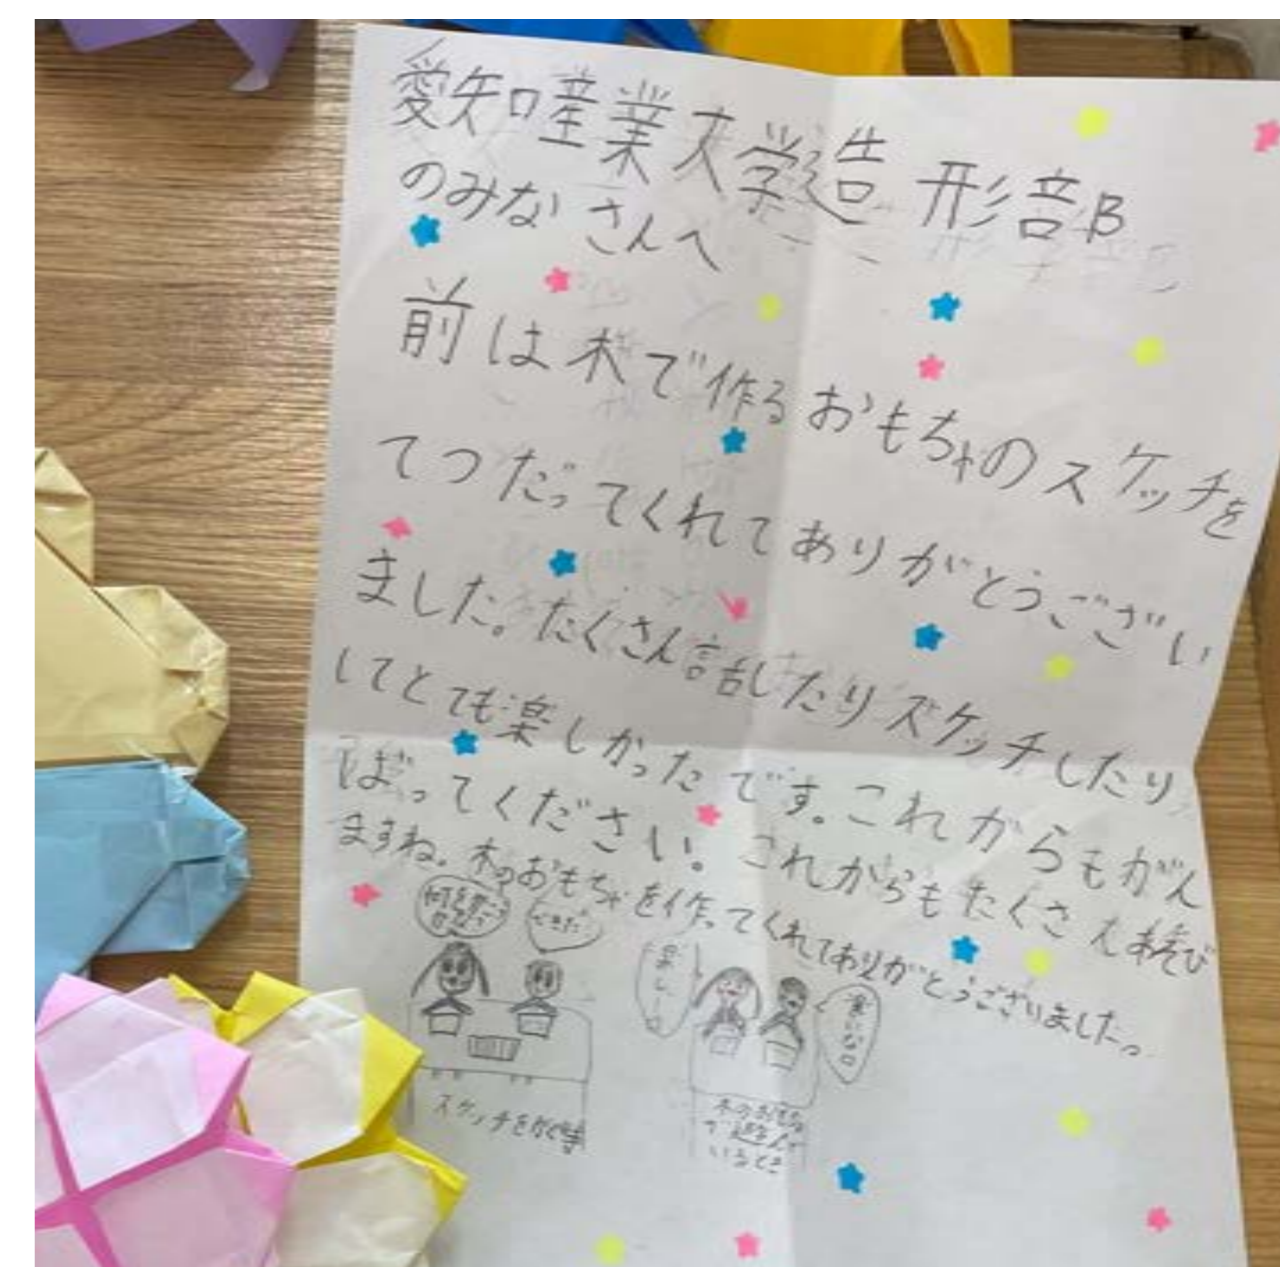 愛知産業大学造形部
のみなさんへ
前は木で作るおもちゃのスケッチを
てつだってくれてありがとうござい
ました。たくさん話したりスケッチしたり
してとても楽しかったです。これからもがん
ばってください。これからもたくさん遊び
ますね。木のおもちゃを作ってくれてありがとうございました。
できた!
楽しーロ
スケッチをかく時
木のおもちゃ
で遊んで
いるとき